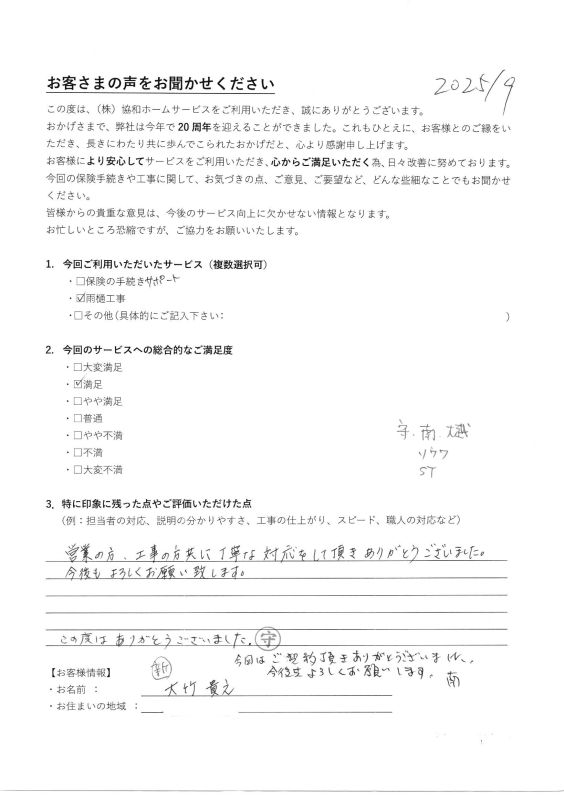 お客さまの声をお聞かせください
2025/9
この度は、（株）協和ホームサービスをご利用いただき、誠にありがとうございます。
おかげさまで、弊社は今年で 20 周年を迎えることができました。これもひとえに、お客様とのご縁をい
ただき、長きにわたり共に歩んでこられたおかげだと、心より感謝申し上げます。
お客様により安心してサービスをご利用いただき、心からご満足いただく為、日々改善に努めております。
今回の保険手続きや工事に関して、お気づきの点、ご意見、ご要望など、どんな些細なことでもお聞かせ
ください。
皆様からの貴重な意見は、今後のサービス向上に欠かせない情報となります。
お忙しいところ恐縮ですが、ご協力をお願いいたします。
1. 今回ご利用いただいたサービス（複数選択可）
・□保険の手続きサポート
・☑雨樋工事
・□その他（具体的にご記入下さい： ）
2. 今回のサービスへの総合的なご満足度
・□大変満足
・☑満足
・□やや満足
・□普通
・□やや不満
・□不満
・□大変不満
守.南.大越
ソウワ
ST
3. 特に印象に残った点やご評価いただけた点
（例：担当者の対応、説明の分かりやすさ、工事の仕上がり、スピード、職人の対応など）
営業の方、工事の方共に丁寧な対応をして頂きありがとうございました。
今後もよろしくお願い致します。
この度はありがとうございました。守
今回はご契約頂きありがとうございました。
今後共よろしくお願いします。南
【お客様情報】
新
・お名前 ： 大竹 貴之
・お住まいの地域 ：